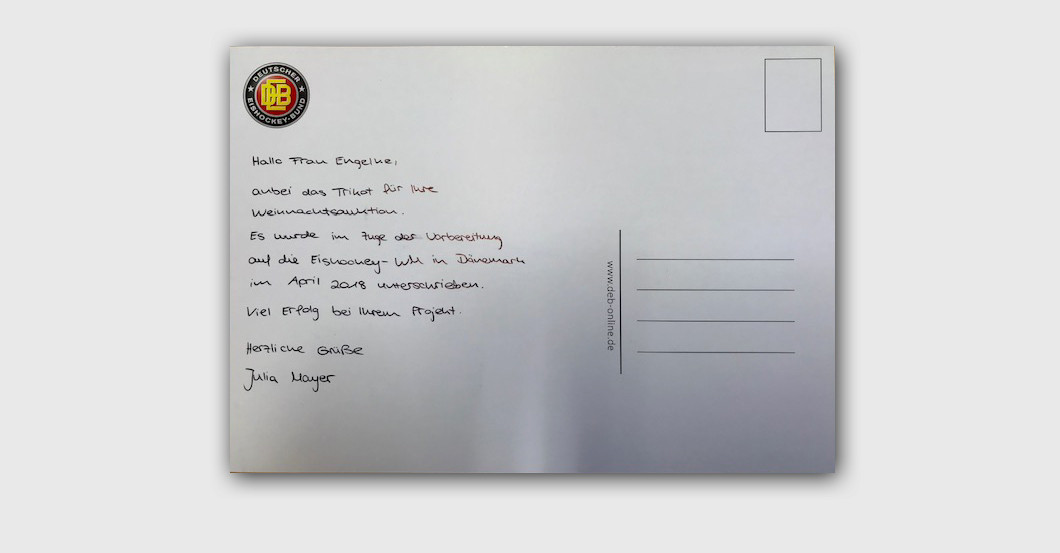 DEUTSCHER
DEB
EISHOCKEY-BUND
Hallo Frau Engelke,
anbei das Trikot für Ihre
Weihnachtsauktion.
Es wurde im Zuge der Vorbereitung
auf die Eishockey-WM in Dänemark
im April 2018 unterschrieben.
Viel Erfolg bei Ihrem Projekt.
Herzliche Grüße
Julia Mayer
www.deb-online.de